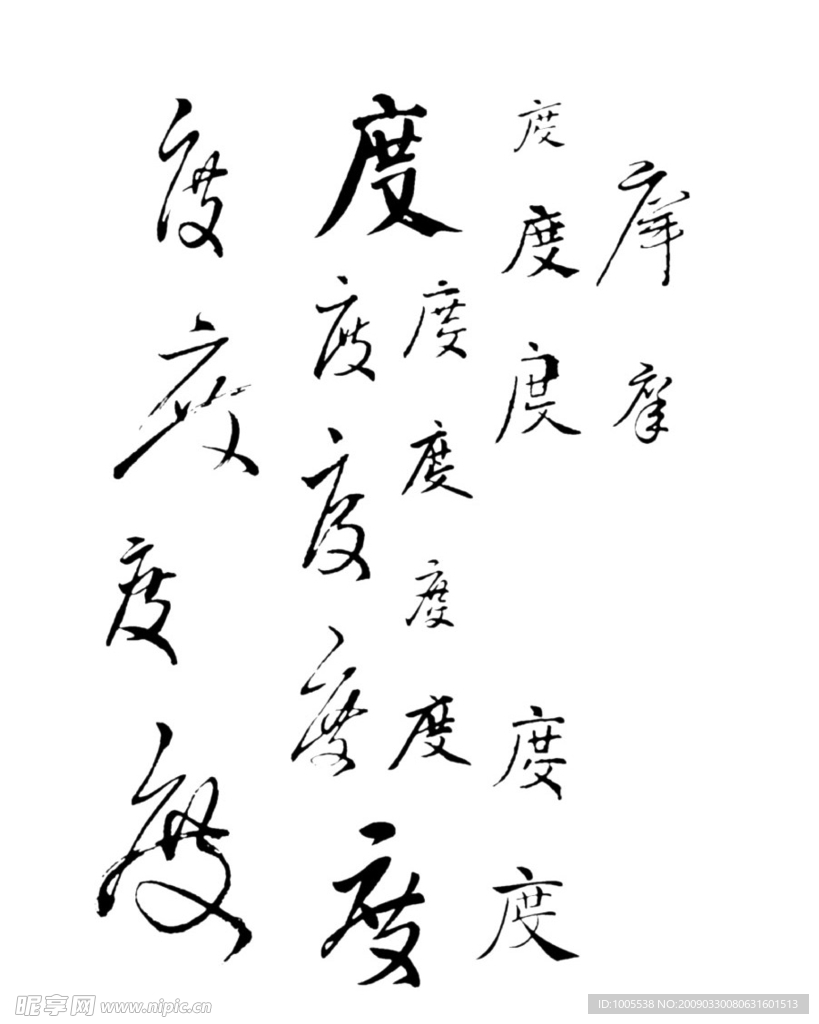 度度
度度度度度
度度度度
度度度度度
度度度度
昵享网 www.nipic.cn
ID:1005538 NO:20090330080631601513